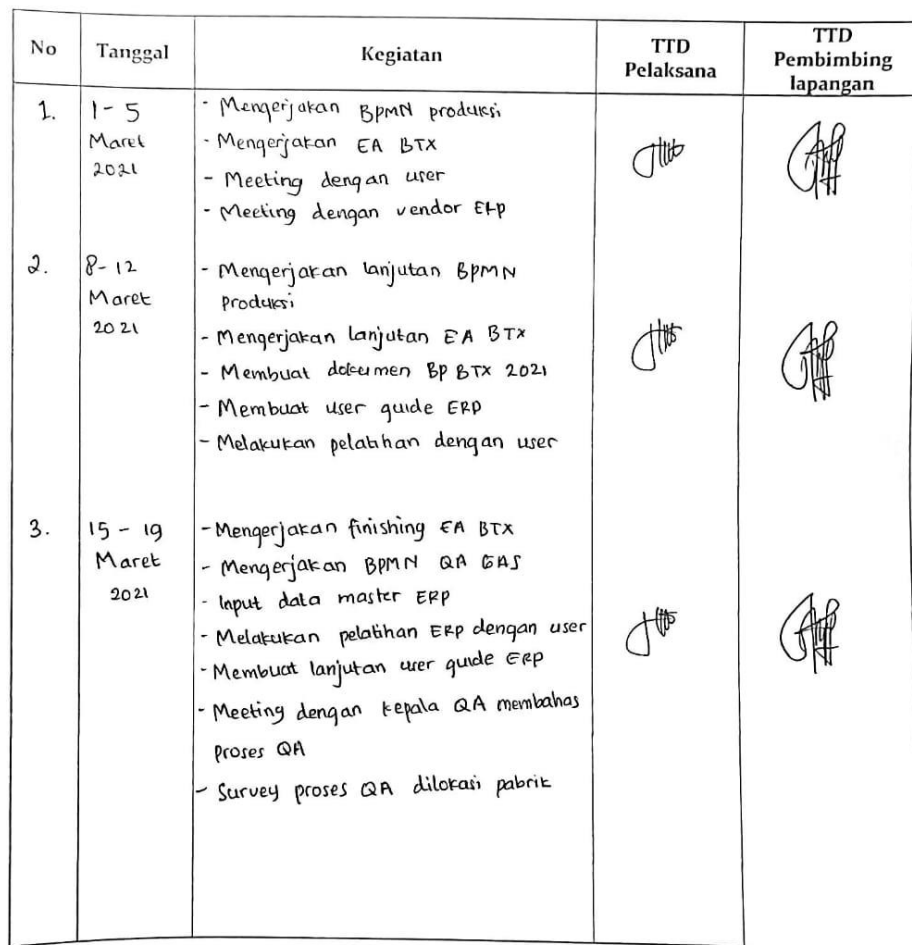 No Tanggal Kegiatan TTD Pelaksana TTD Pembimbing lapangan
1. 1 - 5 Maret 2021
- Mengerjakan BPMN produksi
- Mengerjakan EA BTX
- Meeting dengan user
- Meeting dengan vendor ERP
2. 8 - 12 Maret 2021
- Mengerjakan lanjutan BPMN
produksi
- Mengerjakan lanjutan EA BTX
- Membuat dokumen BP BTX 2021
- Membuat user guide ERP
- Melakukan pelatihan dengan user
3. 15 - 19 Maret 2021
- Mengerjakan finishing EA BTX
- Mengerjakan BPMN QA GAS
- Input data master ERP
- Melakukan pelatihan ERP dengan user
- Membuat lanjutan user guide ERP
- Meeting dengan kepala QA membahas
proses QA
- Survey proses QA dilokasi pabrik